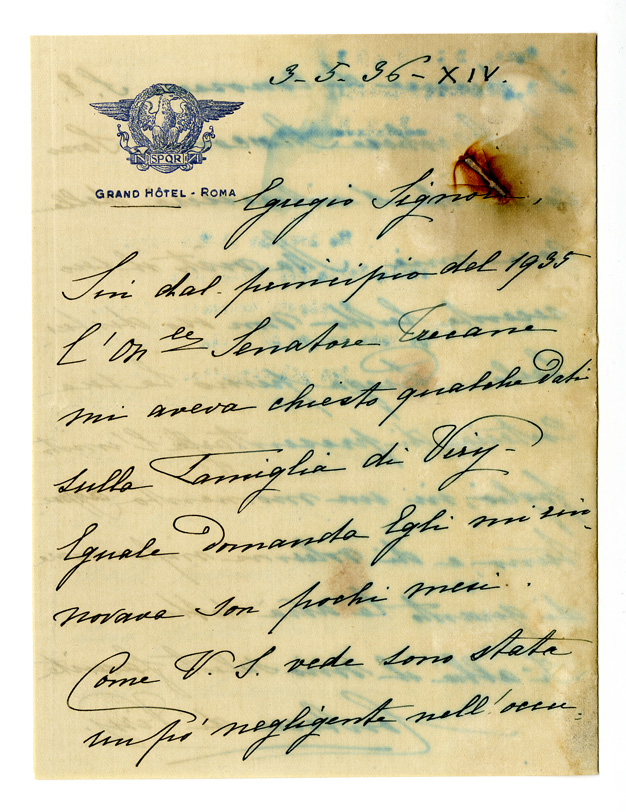 3-5-36-XIV.
SPQR
GRAND HÔTEL - ROMA
Egregio Signore,
Sin dal principio del 1935
l'On.le Senatore Treccane
mi aveva chiesto qualche dati
sulla Famiglia di Viry-
Eguale domanda Egli mi rin-
novava son pochi mesi.
Come V. S. vede sono stata
un pó negligente nell'occu-